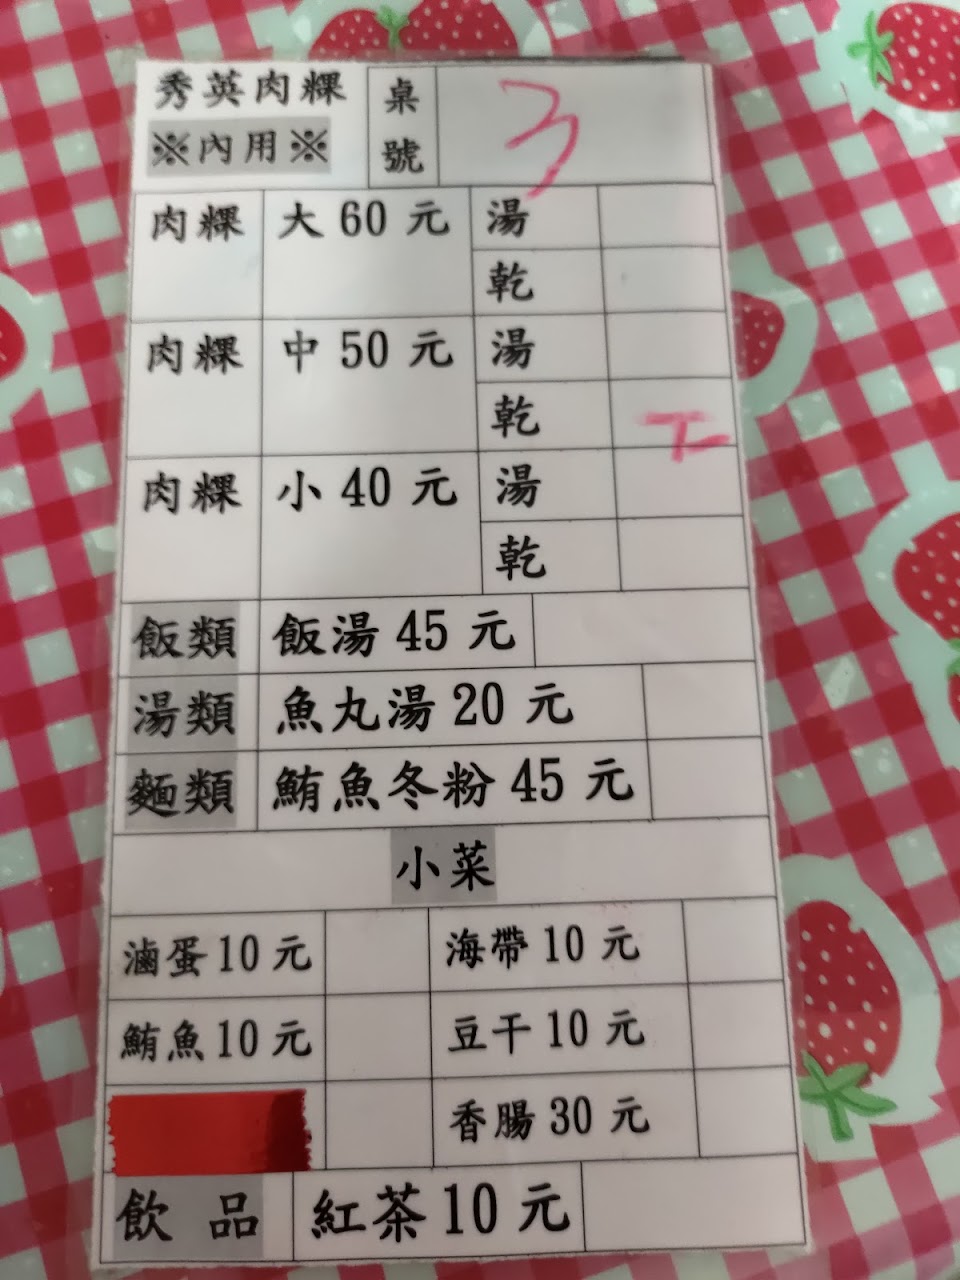 秀英肉粿 桌號 3
※內用※
肉粿 大60元 湯
乾
肉粿 中50元 湯
乾 丅
肉粿 小40元 湯
乾
飯類 飯湯45元
湯類 魚丸湯20元
麵類 鮪魚冬粉45元
小菜
滷蛋10元 海帶10元
鮪魚10元 豆干10元
香腸30元
飲品 紅茶10元